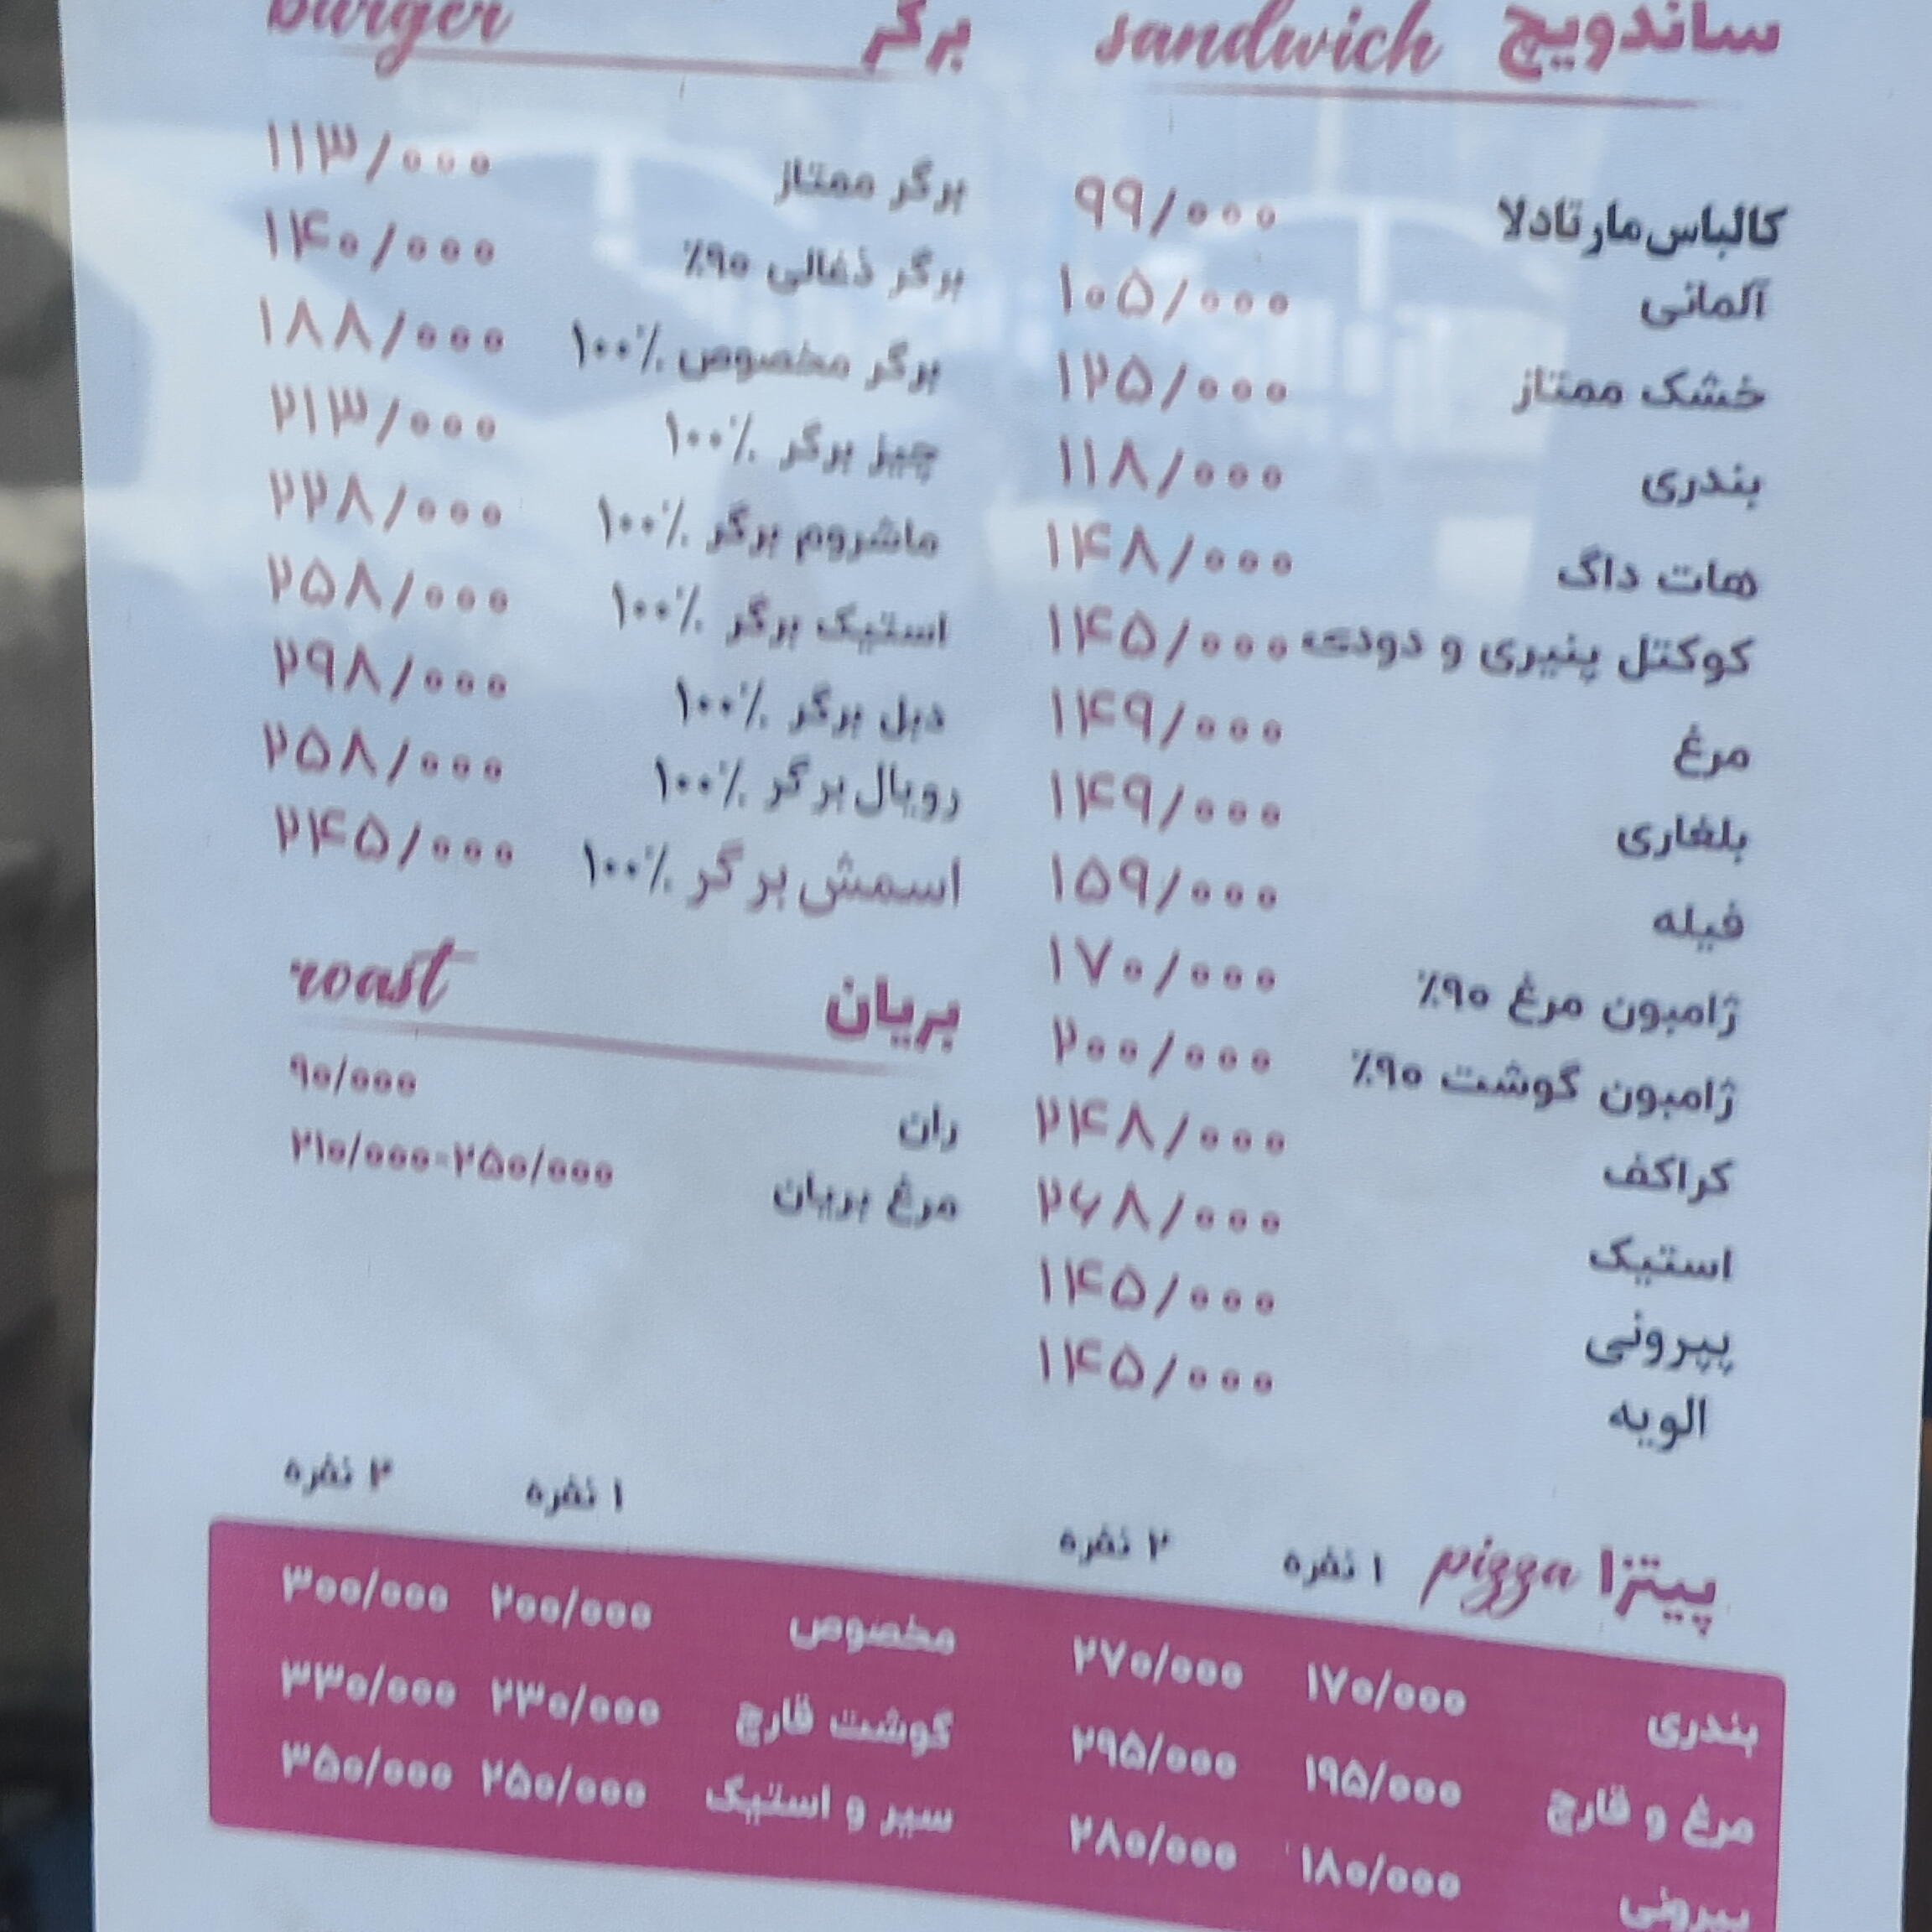 ساندویچ sandwich
کالباس مارتادلا ۹۹/۰۰۰
آلمانی ۱۰۵/۰۰۰
خشک ممتاز ۱۲۵/۰۰۰
بندری ۱۱۸/۰۰۰
هات داگ ۱۴۸/۰۰۰
کوکتل پنیری و دودی ۱۴۵/۰۰۰
مرغ ۱۴۹/۰۰۰
بلغاری ۱۴۹/۰۰۰
فیله ۱۵۹/۰۰۰
ژامبون مرغ ۹۰٪ ۱۷۰/۰۰۰
ژامبون گوشت ۹۰٪ ۲۰۰/۰۰۰
کراکف ۲۴۸/۰۰۰
استیک ۲۶۸/۰۰۰
پپرونی ۱۴۵/۰۰۰
الویه ۱۴۵/۰۰۰
برگر burger
برگر ممتاز ۱۱۳/۰۰۰
برگر ذغالی ۹۰٪ ۱۴۰/۰۰۰
برگر مخصوص ۱۰۰٪ ۱۸۸/۰۰۰
چیز برگر ۱۰۰٪ ۲۱۳/۰۰۰
ماشروم برگر ۱۰۰٪ ۲۲۸/۰۰۰
استیک برگر ۱۰۰٪ ۲۵۸/۰۰۰
دبل برگر ۱۰۰٪ ۲۹۸/۰۰۰
رویال برگر ۱۰۰٪ ۲۵۸/۰۰۰
اسمش برگر ۱۰۰٪ ۲۴۵/۰۰۰
بریان roast
ران ۹۰/۰۰۰
مرغ بریان ۲۱۰/۰۰۰-۲۵۰/۰۰۰
پیتزا pizza ۱ نفره ۲ نفره
بندری ۱۷۰/۰۰۰ ۲۷۰/۰۰۰
مرغ و قارچ ۱۹۵/۰۰۰ ۲۹۵/۰۰۰
پپرونی ۱۸۰/۰۰۰ ۲۸۰/۰۰۰
۱ نفره ۲ نفره
مخصوص ۲۰۰/۰۰۰ ۳۰۰/۰۰۰
گوشت قارچ ۲۳۰/۰۰۰ ۳۳۰/۰۰۰
سیر و استیک ۲۵۰/۰۰۰ ۳۵۰/۰۰۰